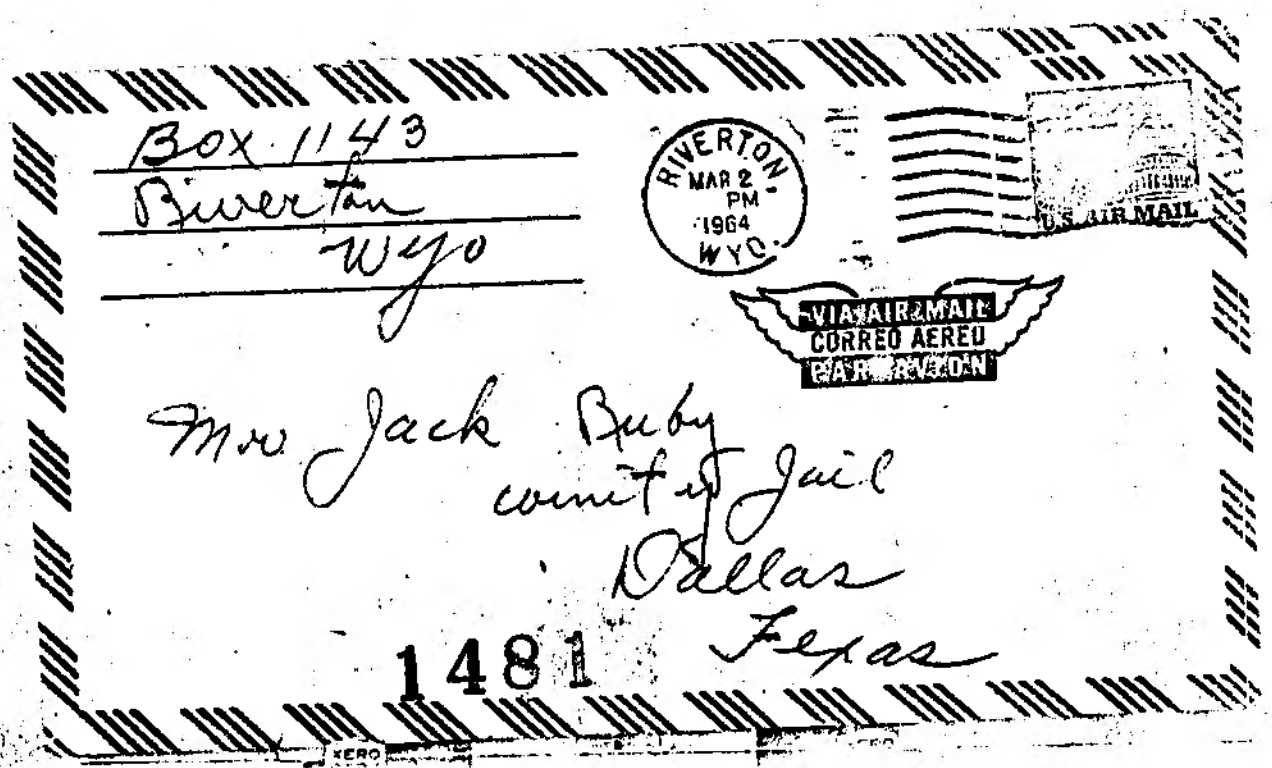 Box 1143
Riverton
Wyo
RIVERTON,
MAR 2
PM
1964
WYO.
U.S. AIR MAIL
VIA AIR MAIL
CORREO AEREO
PAR AVION
Mr. Jack Ruby
county Jail
Dallas
Texas
1481
XERO
XERO